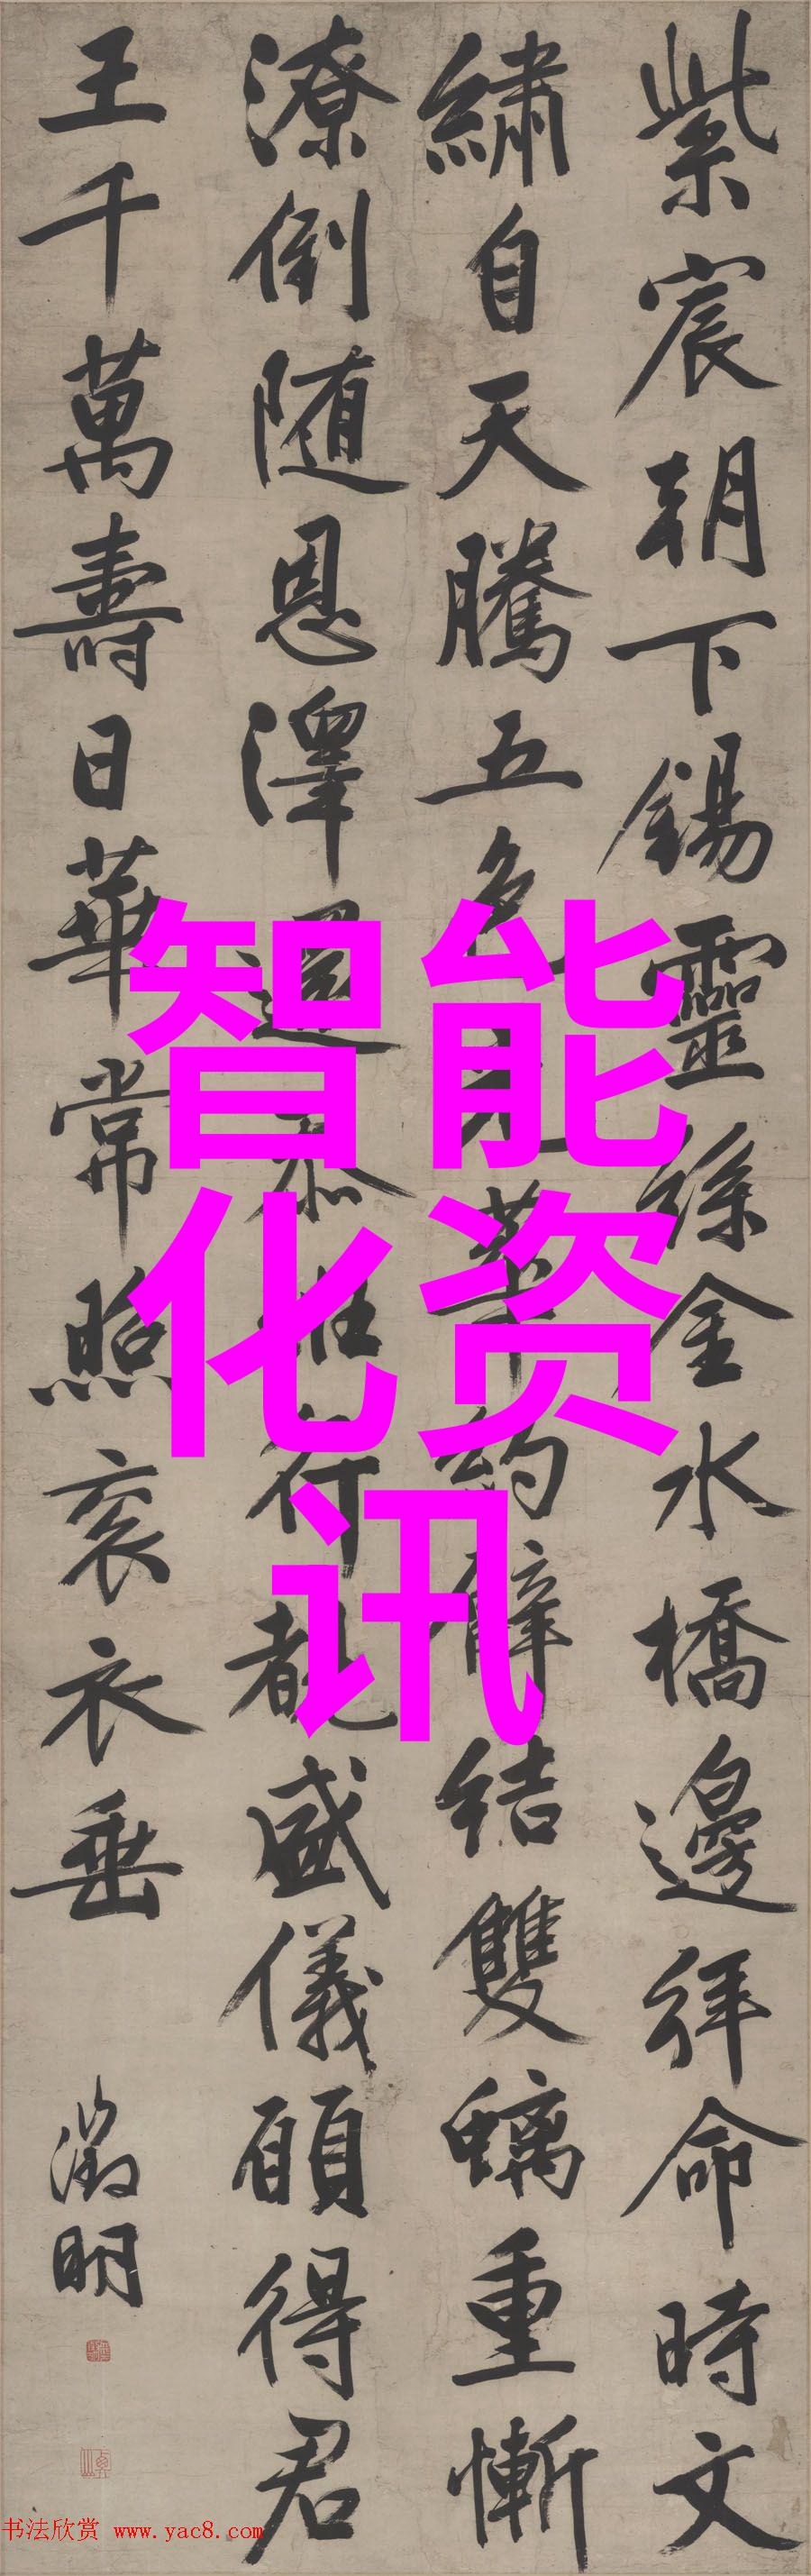 紫宸朝下錫靈絲金水橋邊拜命時文
繡自天騰五色 約臂結雙螭重慚
潦倒随恩澤還 行都盛儀願得君
王千萬壽日華常照衮衣垂
澂明
智能
化资
讯
书法欣赏 www.yac8.com